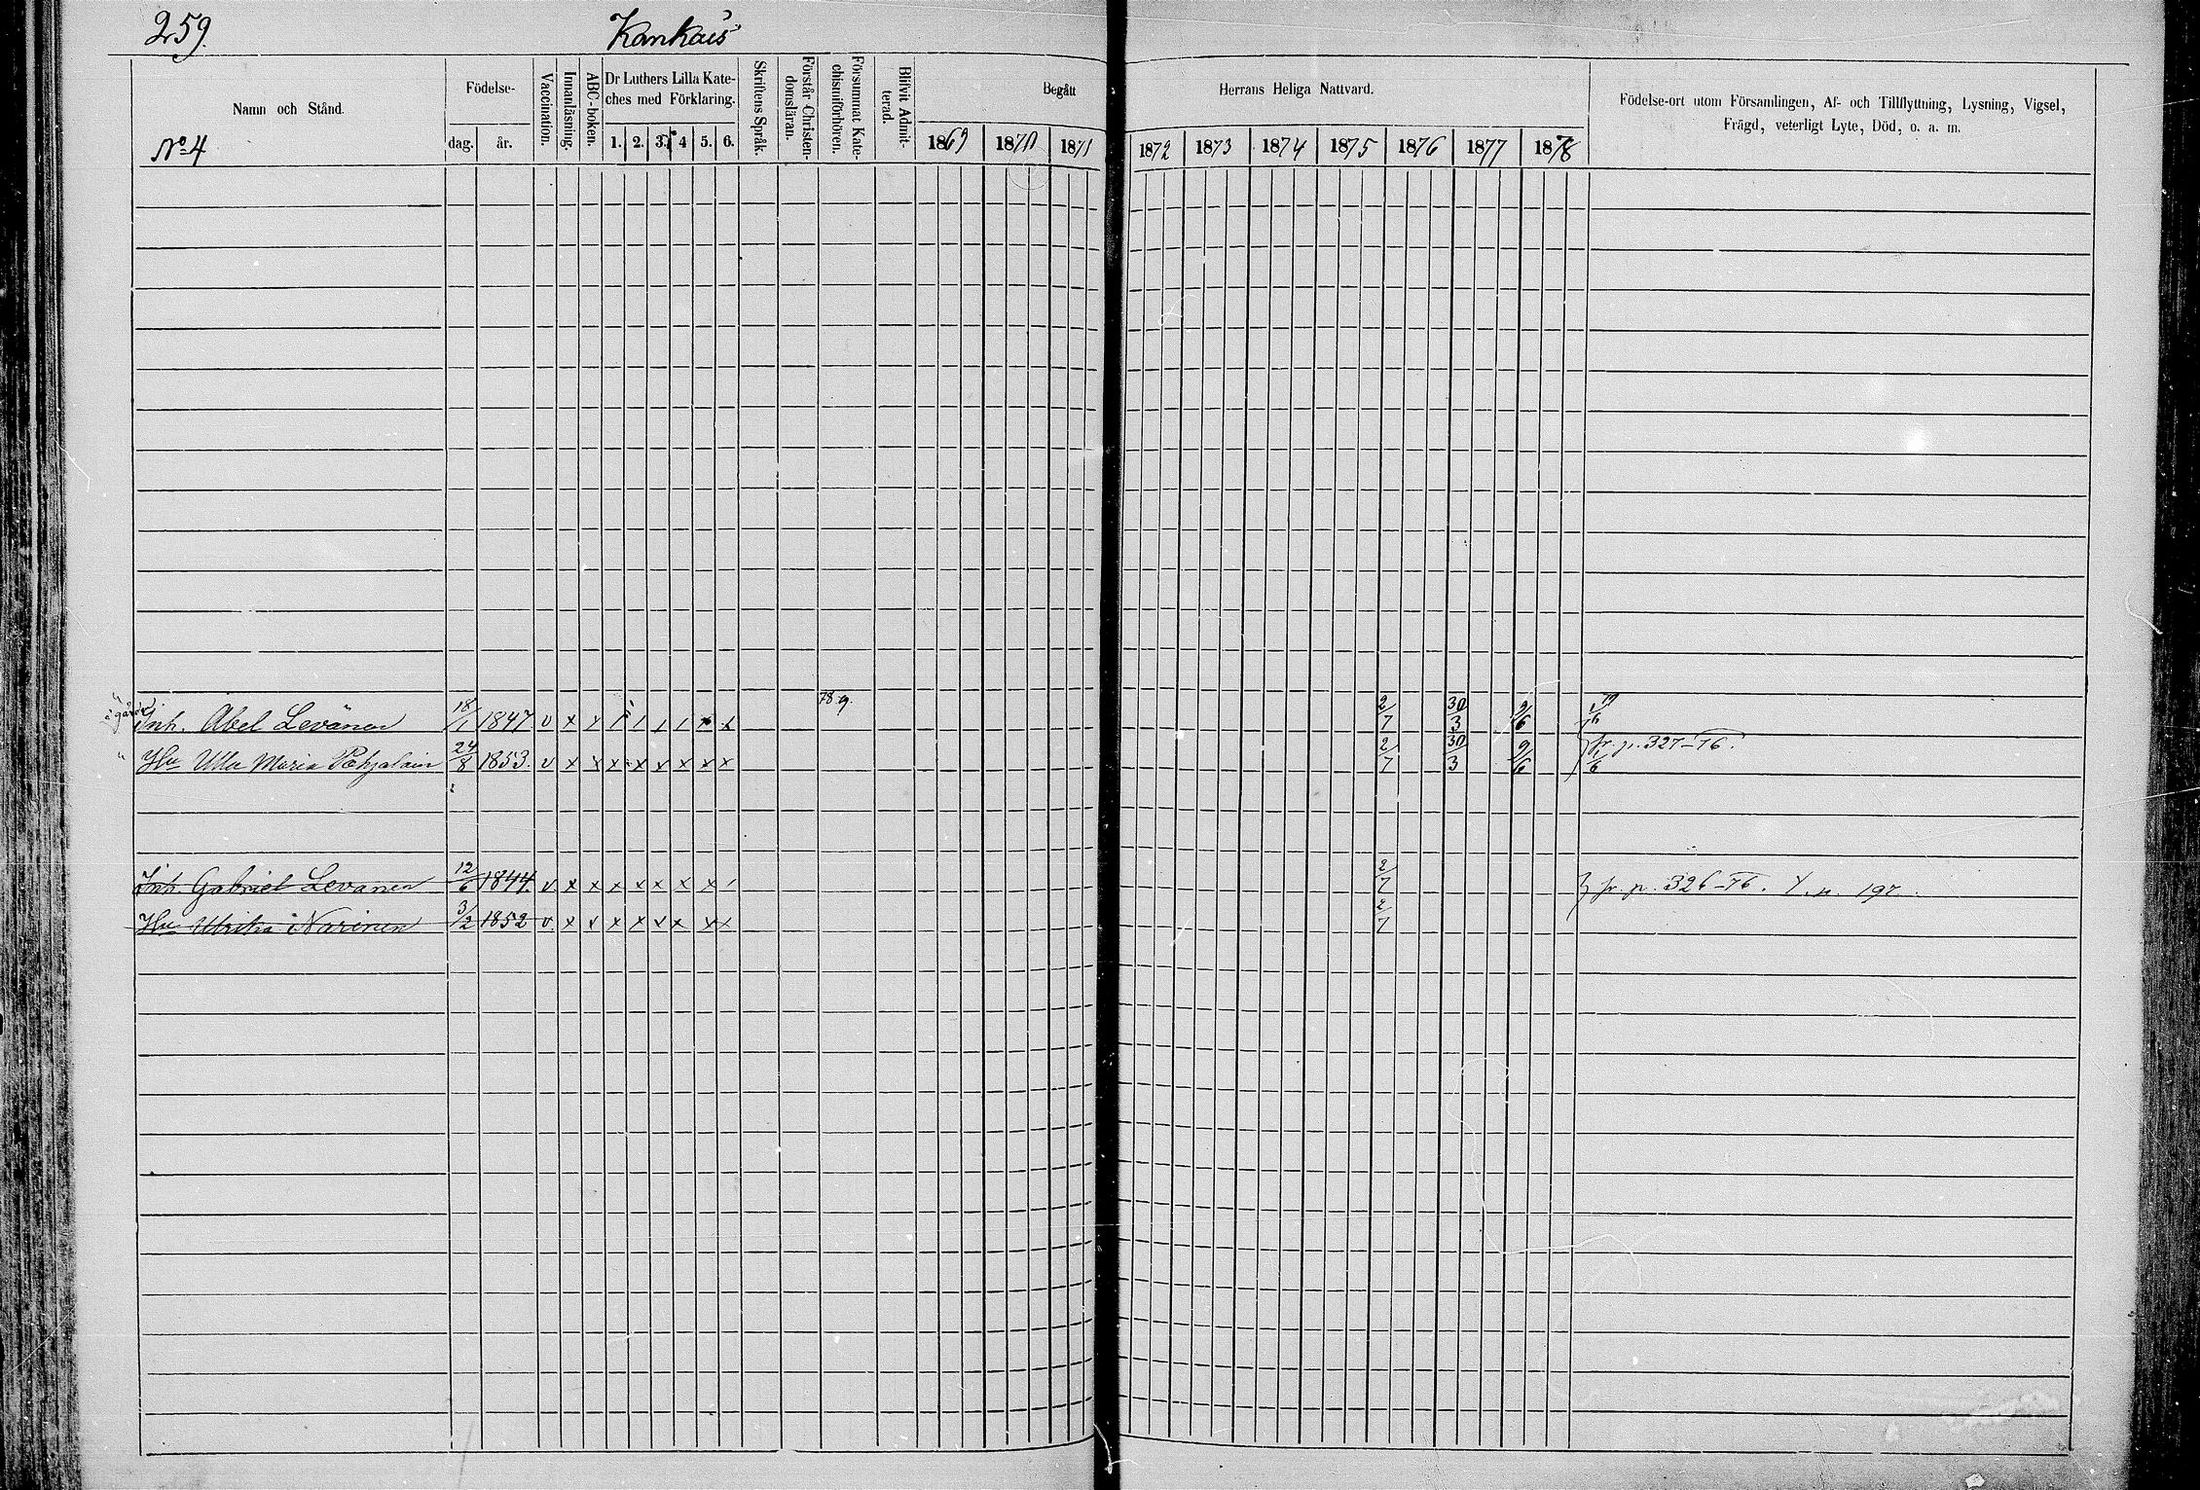 259.
Kankais
Namn och Stånd.
No 4
Födelse-
dag. år.
Vaccination.
Innanläsning.
ABC-boken.
Dr Luthers Lilla Kate-
ches med Förklaring.
1. 2. 3. 4 5. 6.
Skriftens Språk.
Förstår Christen-
domsläran.
Försummat Kate-
chismiförhören.
Blifvit Admit-
terad.
Begått Herrans Heliga Nattvard.
1869 1870 1871 1872 1873 1874 1875 1876 1877 1878
Födelse-ort utom Församlingen, Af- och Tillflyttning, Lysning, Vigsel,
Frägd, veterligt Lyte, Död, o. a. m.
Inh. Abel Levänen 18/1 1847 v x x 1 1 1 1 x x 78 9. 2/7 30/3 9/6
Hu Ulla Maria Pohjalain 24/8 1853. v x x x x x x x x 2/7 30/3 9/6 fr. p. 327-76.
Inh. Gabriel Levanen 12/6 1844 v x x x x x x x / 2/7 fr. p. 326-76. Y. n. 197.
Hu Ulrika Narinen 3/2 1852 v x v x x x x x x 2/7